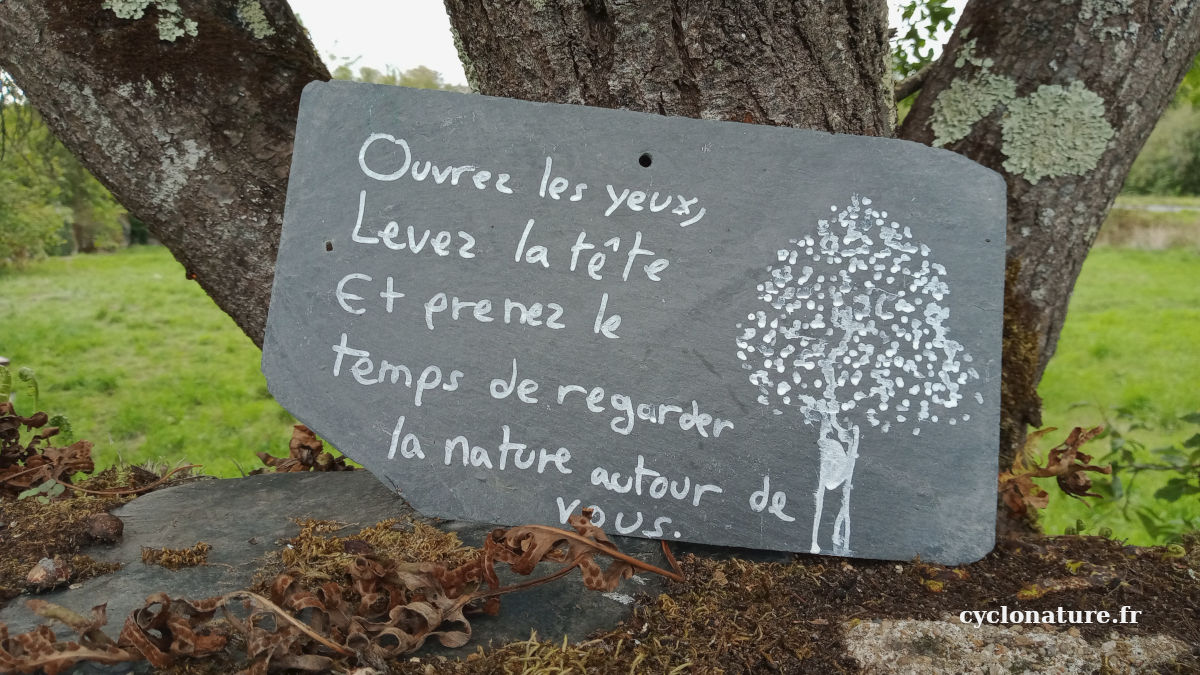 Ouvrez les yeux,
Levez la tête
Et prenez le
temps de regarder
la nature autour de
vous.
cyclonature.fr